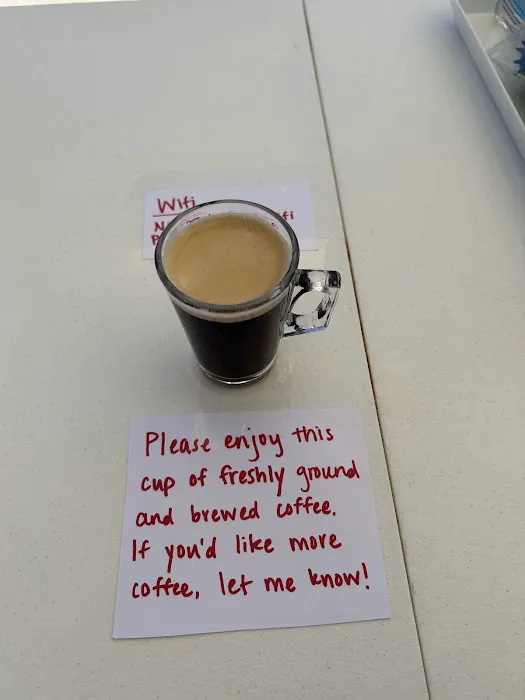 Wifi
Please enjoy this
cup of freshly ground
and brewed coffee.
If you'd like more
coffee, let me know!